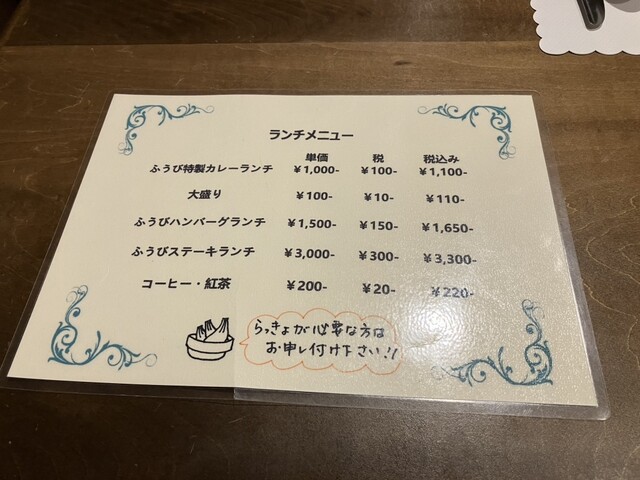 ランチメニュー
単価 税 税込み
ふうび特製カレーランチ ￥1,000- ￥100- ￥1,100-
大盛り ￥100- ￥10- ￥110-
ふうびハンバーグランチ ￥1,500- ￥150- ￥1,650-
ふうびステーキランチ ￥3,000- ￥300- ￥3,300-
コーヒー・紅茶 ￥200- ￥20- ￥220-
らっきょが必要な方は
お申し付け下さい!!